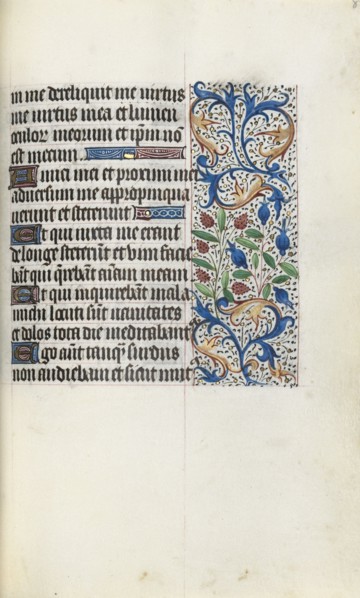 in me dereliquit me virtus
me virtus mea et lumen
oculor meorum et ipm nō
est mecum.
Amici mei et proximi mei
adversum me appropinqua
verunt et steterunt
Et qui iuxta me erant
de longe steterūt et vim facie
bāt qui q̄rebāt aīam meam
Et qui inquirebāt mala
michi locuti sūt vanitates
et dolos tota die meditabant
Ego aūt tanq̄ surdus
non audiebam et sicut mut